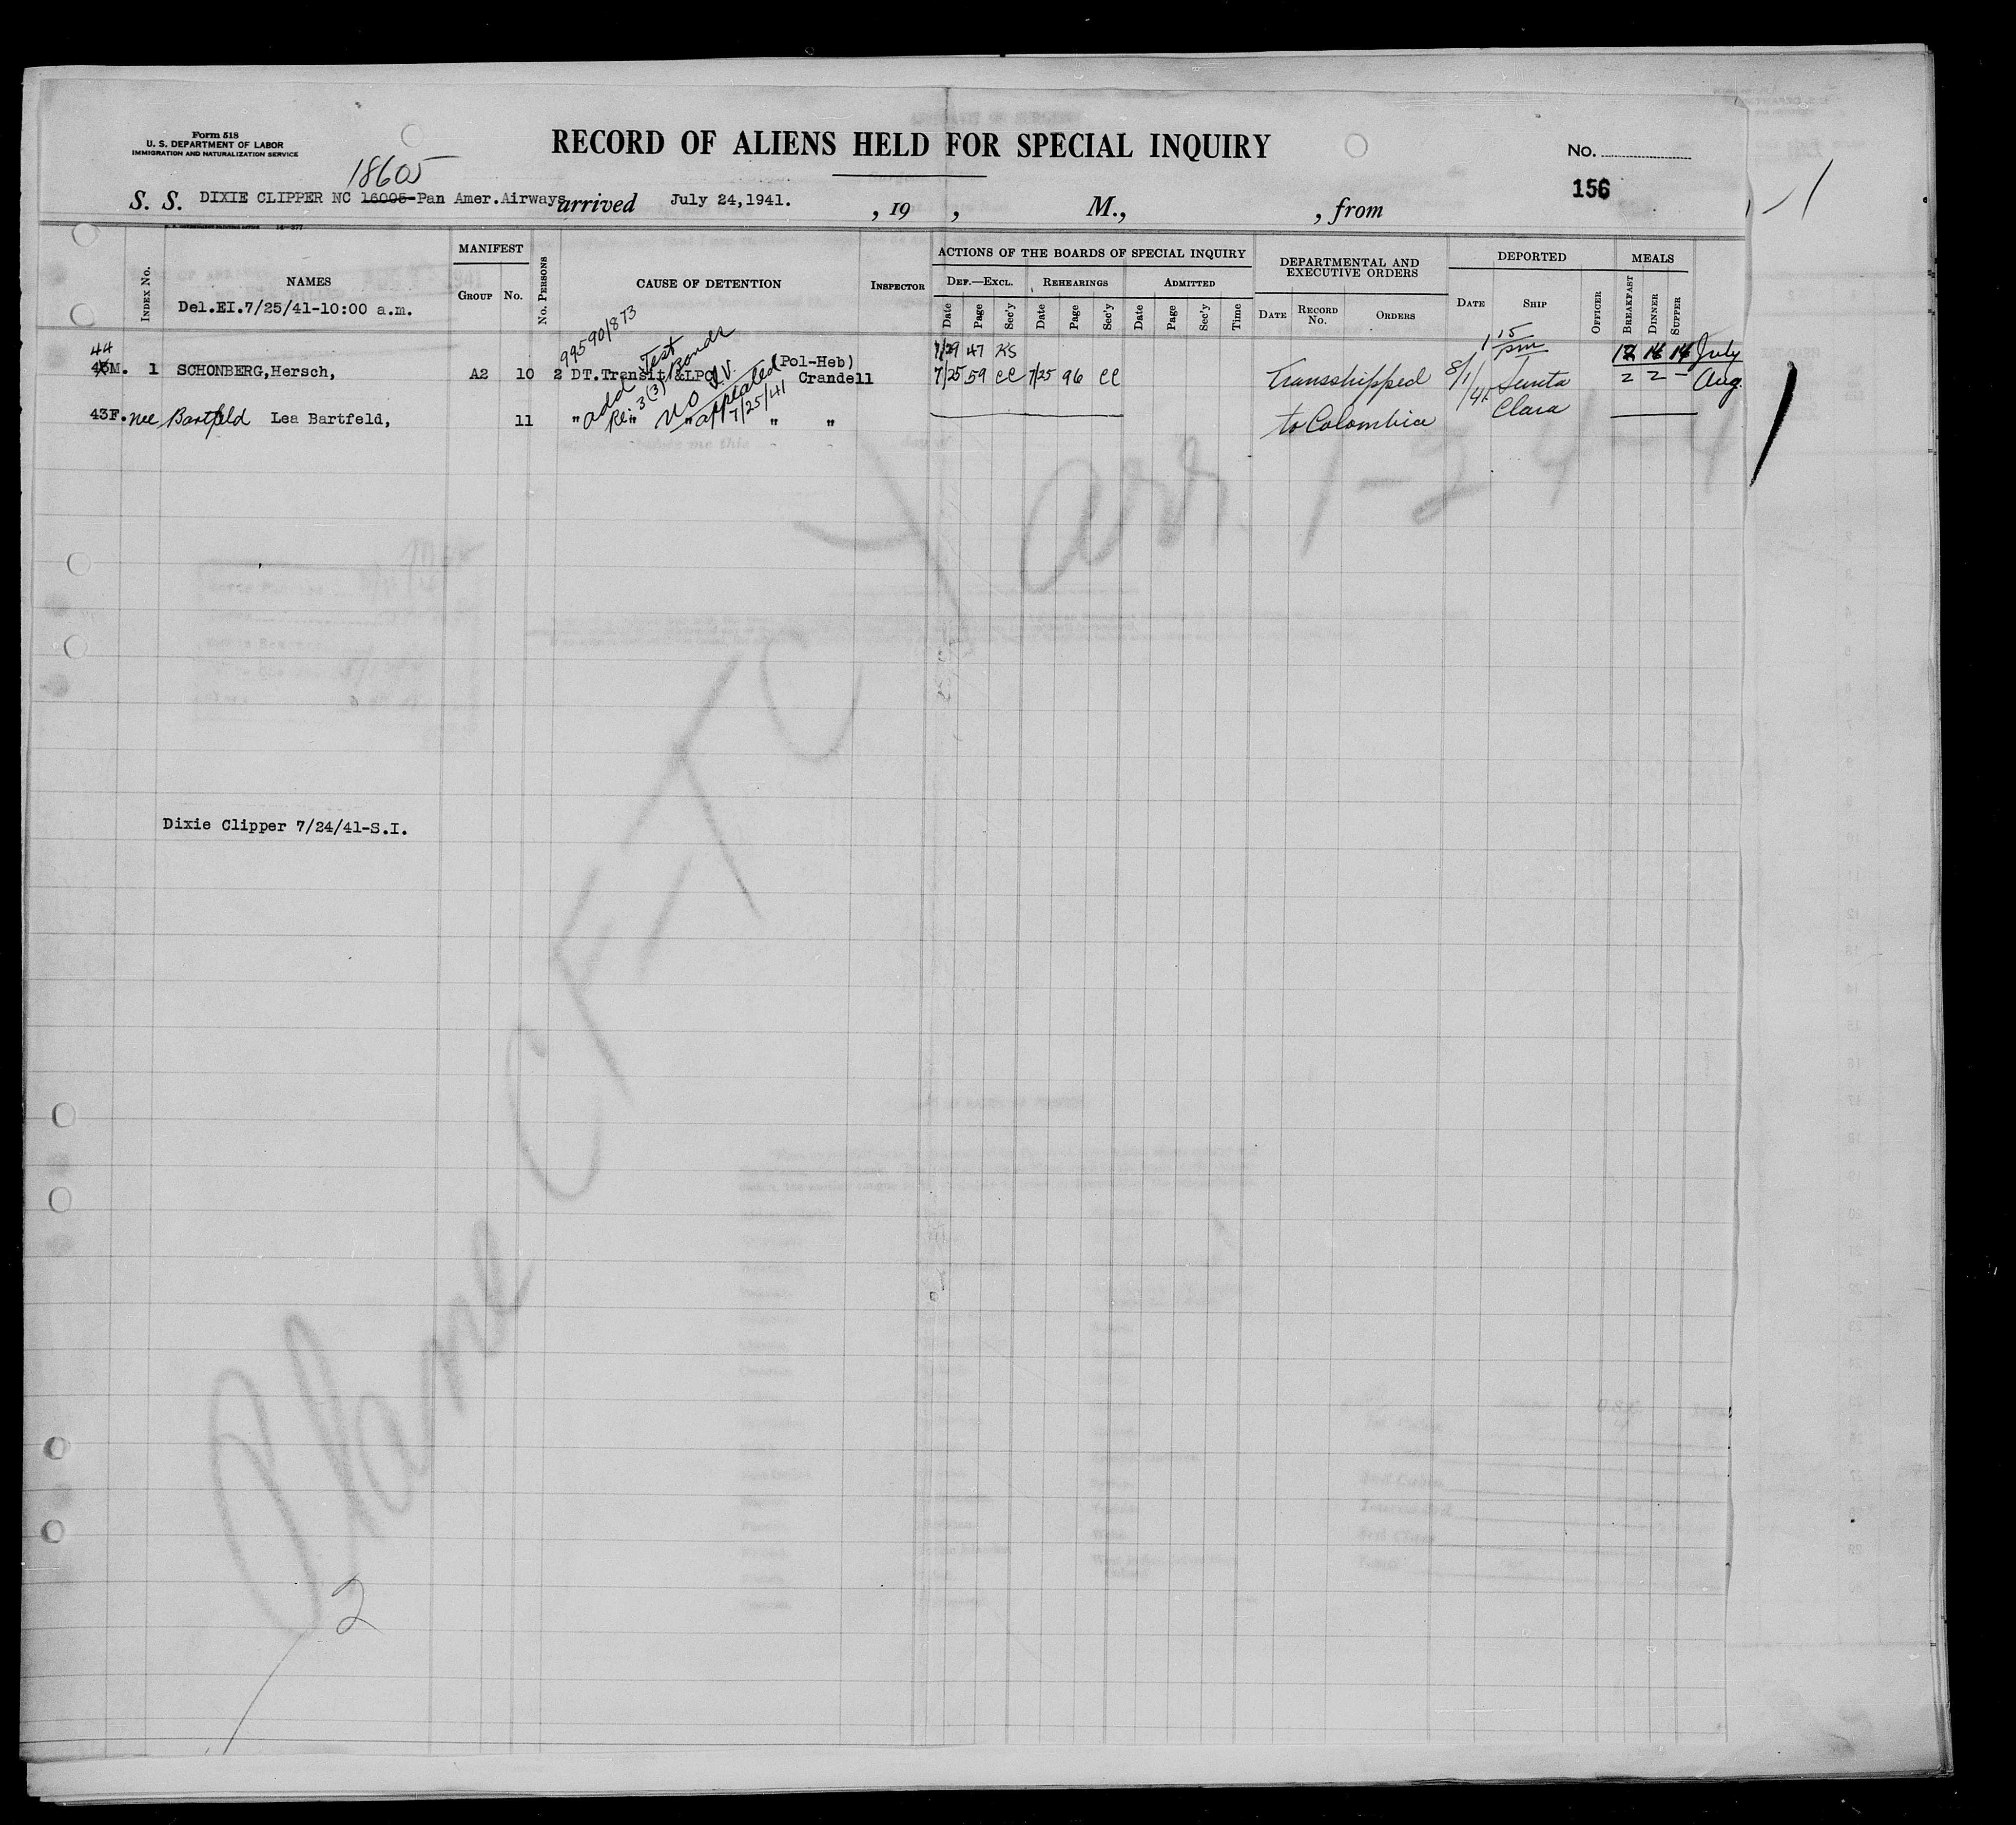 Form 518
U. S. DEPARTMENT OF LABOR
IMMIGRATION AND NATURALIZATION SERVICE
RECORD OF ALIENS HELD FOR SPECIAL INQUIRY
No.
156
18605
S. S. DIXIE CLIPPER NC 16005-Pan Amer.Airways arrived July 24,1941. , 19 , M., , from
INDEX No.
NAMES
Del.EI.7/25/41-10:00 a.m.
MANIFEST
GROUP No.
No. PERSONS
CAUSE OF DETENTION
INSPECTOR
ACTIONS OF THE BOARDS OF SPECIAL INQUIRY
DEF.—EXCL. REHEARINGS ADMITTED
Date Page Sec'y Date Page Sec'y Date Page Sec'y Time
DEPARTMENTAL AND EXECUTIVE ORDERS
DATE RECORD No. ORDERS
DEPORTED
DATE SHIP OFFICER
MEALS
BREAKFAST DINNER SUPPER
99590/873
44
45M. 1 SCHONBERG,Hersch, A2 10 2 DT.Transit &LPC (Pol-Heb) Crandell
add Test
Re: 3(3) Bonds
no I.V.
appealed
7/25/41
7/29 47 KS
7/25 59 CC 7/25 96 CC
Transshipped
to Colombia
8/1/41
1 15 pm
Santa
Clara
July
2 2 - Aug.
43F. nee Bartfeld Lea Bartfeld, 11 " " " " "
arr. 1-24-4
Dixie Clipper 7/24/41-S.I.
Plane CF-TC
2